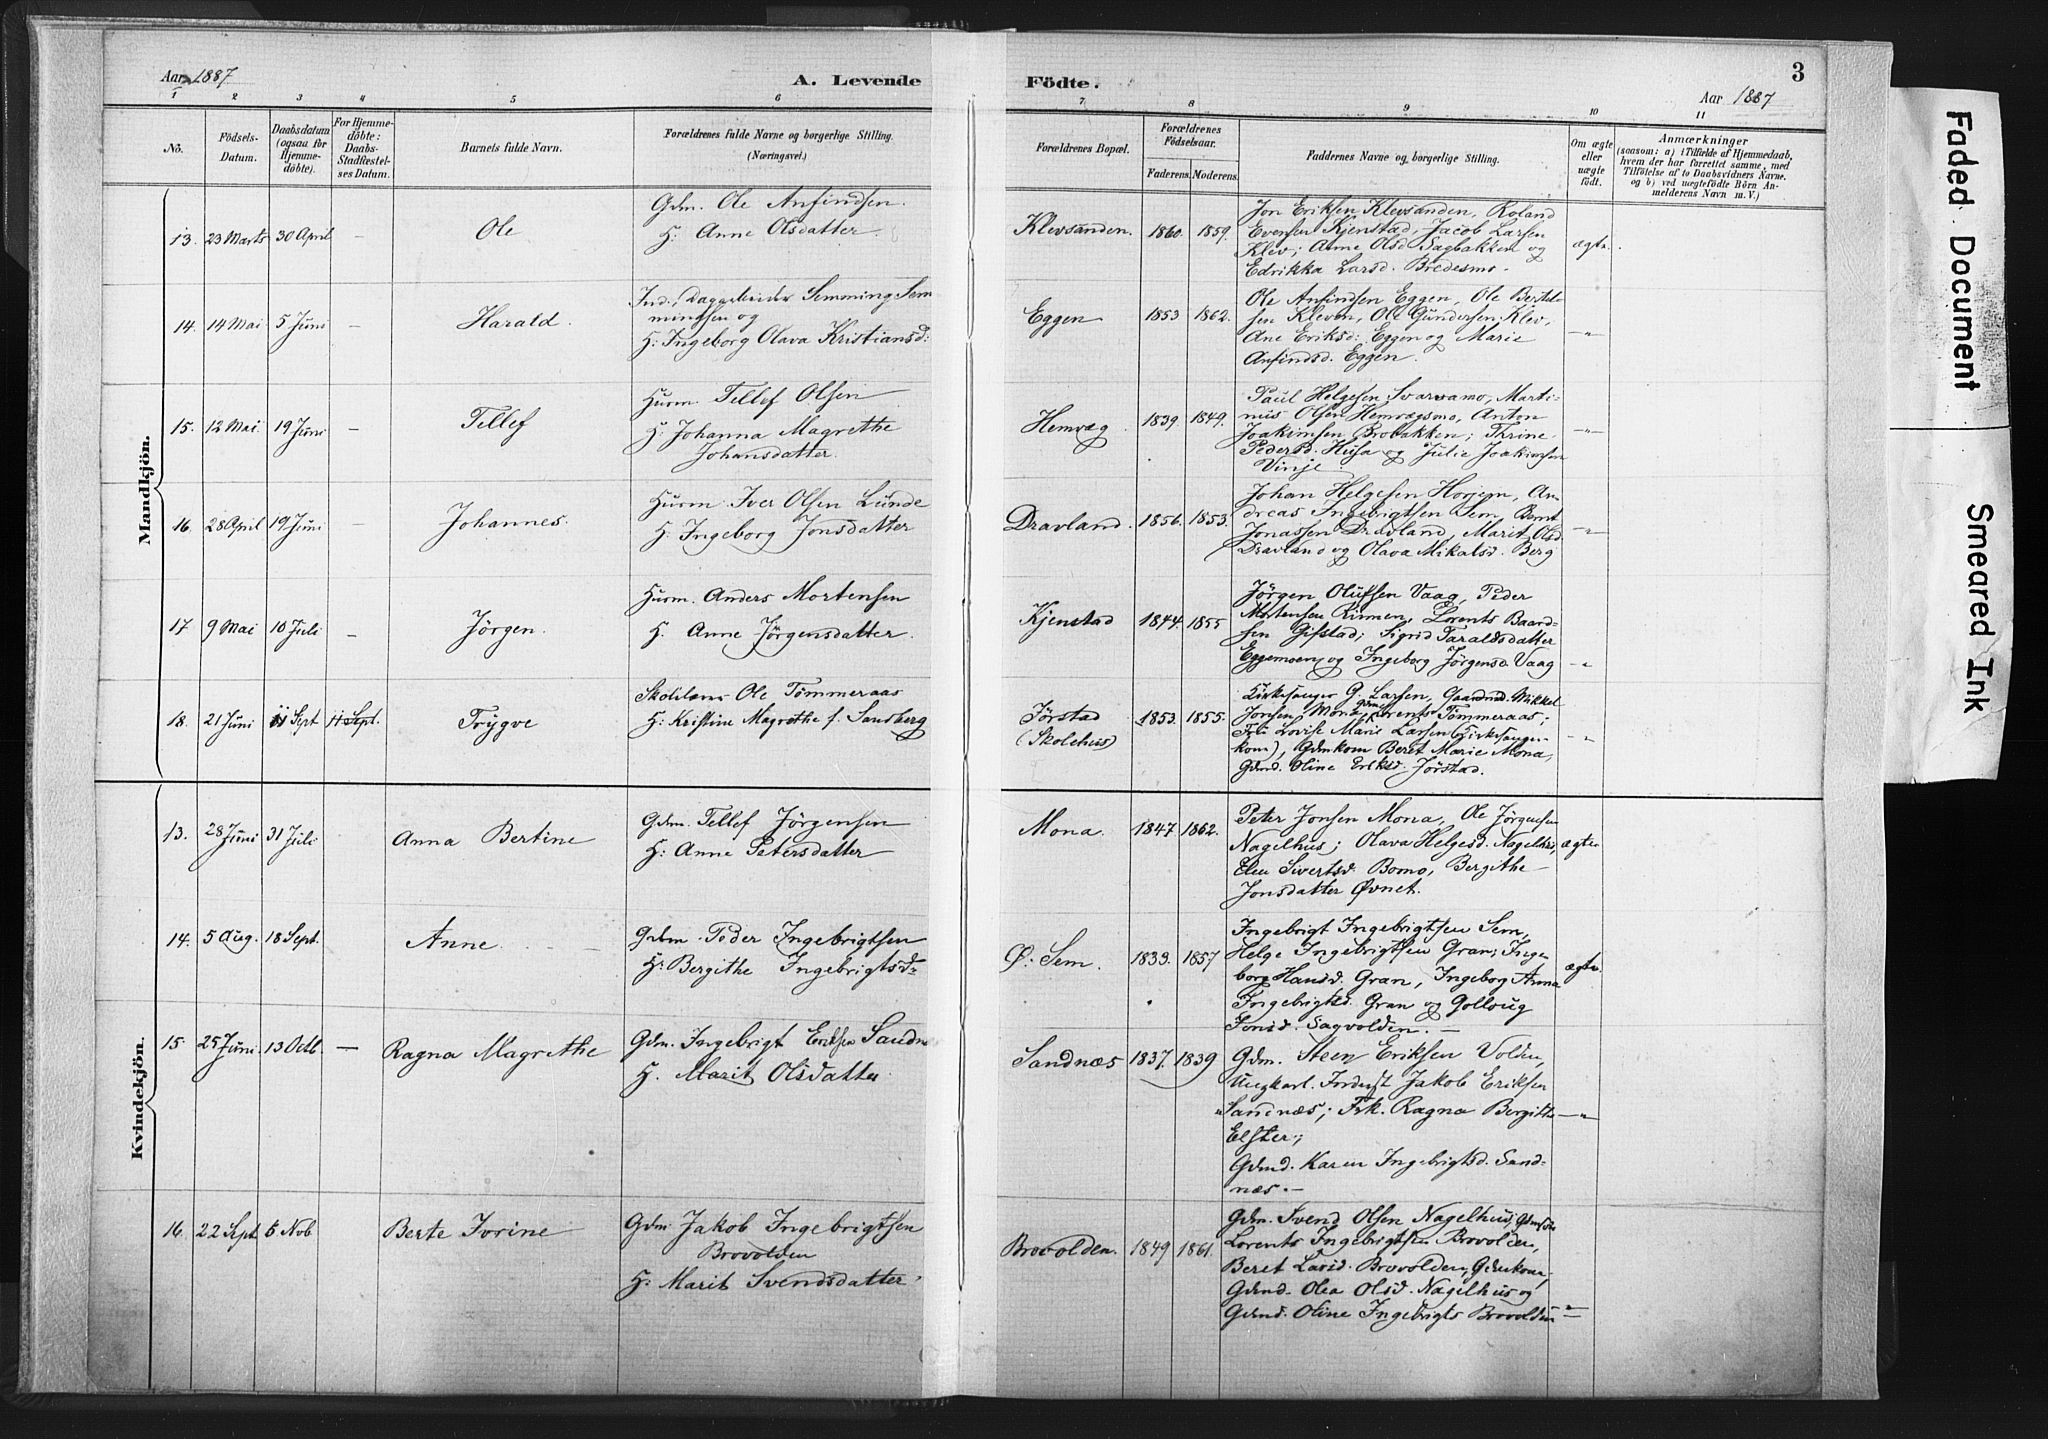 Aar 1887
A. Levende Födte.
3
Aar 1887
1 2 3 4 5 6 7 8 9 10 11
No.
Födsels-
Datum.
Daabsdatum
(ogsaa for
Hjemme-
döbte).
For Hjemme-
döbte:
Daabs-
Stadfestel-
ses Datum.
Barnets fulde Navn.
Forældrenes fulde Navne og borgerlige Stilling.
(Næringsvei.)
Forældrenes Bopæl.
Forældrenes
Födselsaar.
Faderens. Moderens.
Faddernes Navne og borgerlige Stilling.
Om ægte
eller
uægte
födt.
Anmærkninger
(saasom: a) i Tilfælde af Hjemmedaab,
hvem der har forrettet samme, med
Tilföielse af to Daabsvidners Navne.
og b) ved uægtefödte Börn An-
melderens Navn m. V.)
Mandkjön.
13. 23 Marts 30 April – Ole
Gdm. Ole Anfindsen.
H: Anne Olsdatter.
Klevsanden. 1860. 1859.
Jon Eriksen Klevsanden, Roland
Evensen Kjenstad, Jacob Larsen
Klev; Anne Olsd Sagbakken og
Edrikka Larsd. Bredesmo.
ægte.
14. 14 Mai 5 Juni – Harald.
Ind., Dagarbeider Semming Sem
mingsen og
H: Ingeborg Olava Kristiansd:
Eggen 1853 1862.
Ole Anfindsen Eggen, Ole Bertel-
sen Kleven, Ole Gundersen Klev,
Ane Eriksd. Eggen og Marie
Anfindsd. Eggen.
–"–
15. 12 Mai. 19 Juni – Tellef
Husm. Tellef Olsen
H: Johanna Magrethe
Johansdatter.
Hemvæg. 1839. 1849.
Paul Helgesen Svarvamo, Marti-
nus Olsen Hemvægsmo, Anton
Joakimsen Brobakken; Thrine
Pedersd. Husa og Julie Joakimsen
Vinje
–"–
16. 28 April 19 Juni – Johannes.
Husm Iver Olsen Lunde
H. Ingeborg Jonsdatter
Dravland. 1856. 1853.
Johan Helgesen Horjem, An-
dreas Ingebrigtsen Sem, Bernt
Jonassen Dravland, Marit Olsd
Dravland og Olava Mikalsd. Berg
–"–
17 9 Mai 10 Juli – Jörgen.
Husm. Anders Mortensen
H. Anne Jörgensdatter.
Kjenstad 1844. 1855
Jörgen Olufsen Vaag, Peder
Mortensen Rinnen, Lorents Baard-
sen Gifstad; Sigrid Taraldsdatter
Eggemoen og Ingeborg Jörgensd. Vaag
–"
18. 21 Juni 11 Sept 11 Sept. Trygve
Skolelærer Ole Tömmeraas
H: Kristine Magrethe f. Sandberg
Jörstad
(Skolehus)
1853. 1855.
Kirkesanger G. Larsen, Gaardmd. Mikkel
Jonsen Mona, Lorents Tömmeraas;
Fru Lovise Marie Larsen (Kirkesanger-
kone), Gdmkone Beret Marie Mona,
Gdmd. Oline Eriksd. Jörstad.
–"–
Kvindekjön.
13. 28 Juni 31 Juli Anna Bertine
Gdm. Tellef Jörgensen
H: Anne Petersdatter
Mona. 1847 1862.
Peter Jonsen Mona, Ole Jörgensen
Nagelhus; Olava Helgesd. Nagelhus,
Elen Sivertsd. Bomo, Bergithe
Jonsdatter Øvnet.
ægte
14. 5 Aug. 18 Sept. Anne
Gdm. Peder Ingebrigtsen
H: Bergithe Ingebrigtsd.
Ø: Sem. 1833. 1857
Ingebrigt Ingebrigtsen Sem,
Helge Ingebrigtsen Gran; Inge-
borg Hansd. Gran, Ingeborg Anna
Ingebrigtsd. Gran og Golloug
Jonsd. Sagvolden. –
ægte.
15. 25 Juni 13 Octb. – Ragna Magrethe
Gdm. Ingebrigt Eriksen Sandn
H. Marit Olsdatter
Sandnæs 1837. 1839
Gdm. Steen Eriksen Volden,
Ungkarl. Jakob Eriksen
Sandnæs; Frk. Ragna Bergitte
Elster;
Gdmd. Karen Ingebrigtsd. Sand-
næs. –
–"–
16. 22 Sept 6 Nob Berte Jorine
Gdm Jakob Ingebrigtsen
Brovolden
H: Marit Svendsdatter
Brovolden. 1849 1861.
Gdm. Svend Olsen Nagelhus,
Lorents Ingebrigtsen Brovolden,
Beret Larsd. Brovolden, Gdmkone,
Gdmd. Olea Olsd. Nagelhus og
Gdmd. Oline Ingebrigts Brovolden
–"–
Faded Document
Smeared Ink